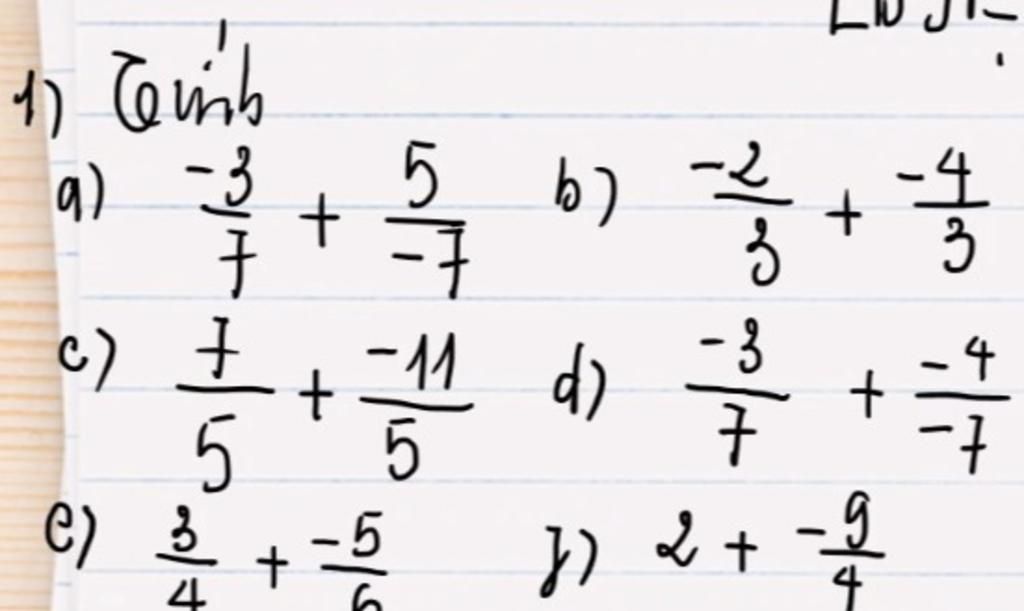 1) Tính
a) -3/7 + 5/-7 b) -2/3 + -4/3
c) 7/5 + -11/5 d) -3/7 + -4/-7
e) 3/4 + -5/6 f) 2 + -9/4